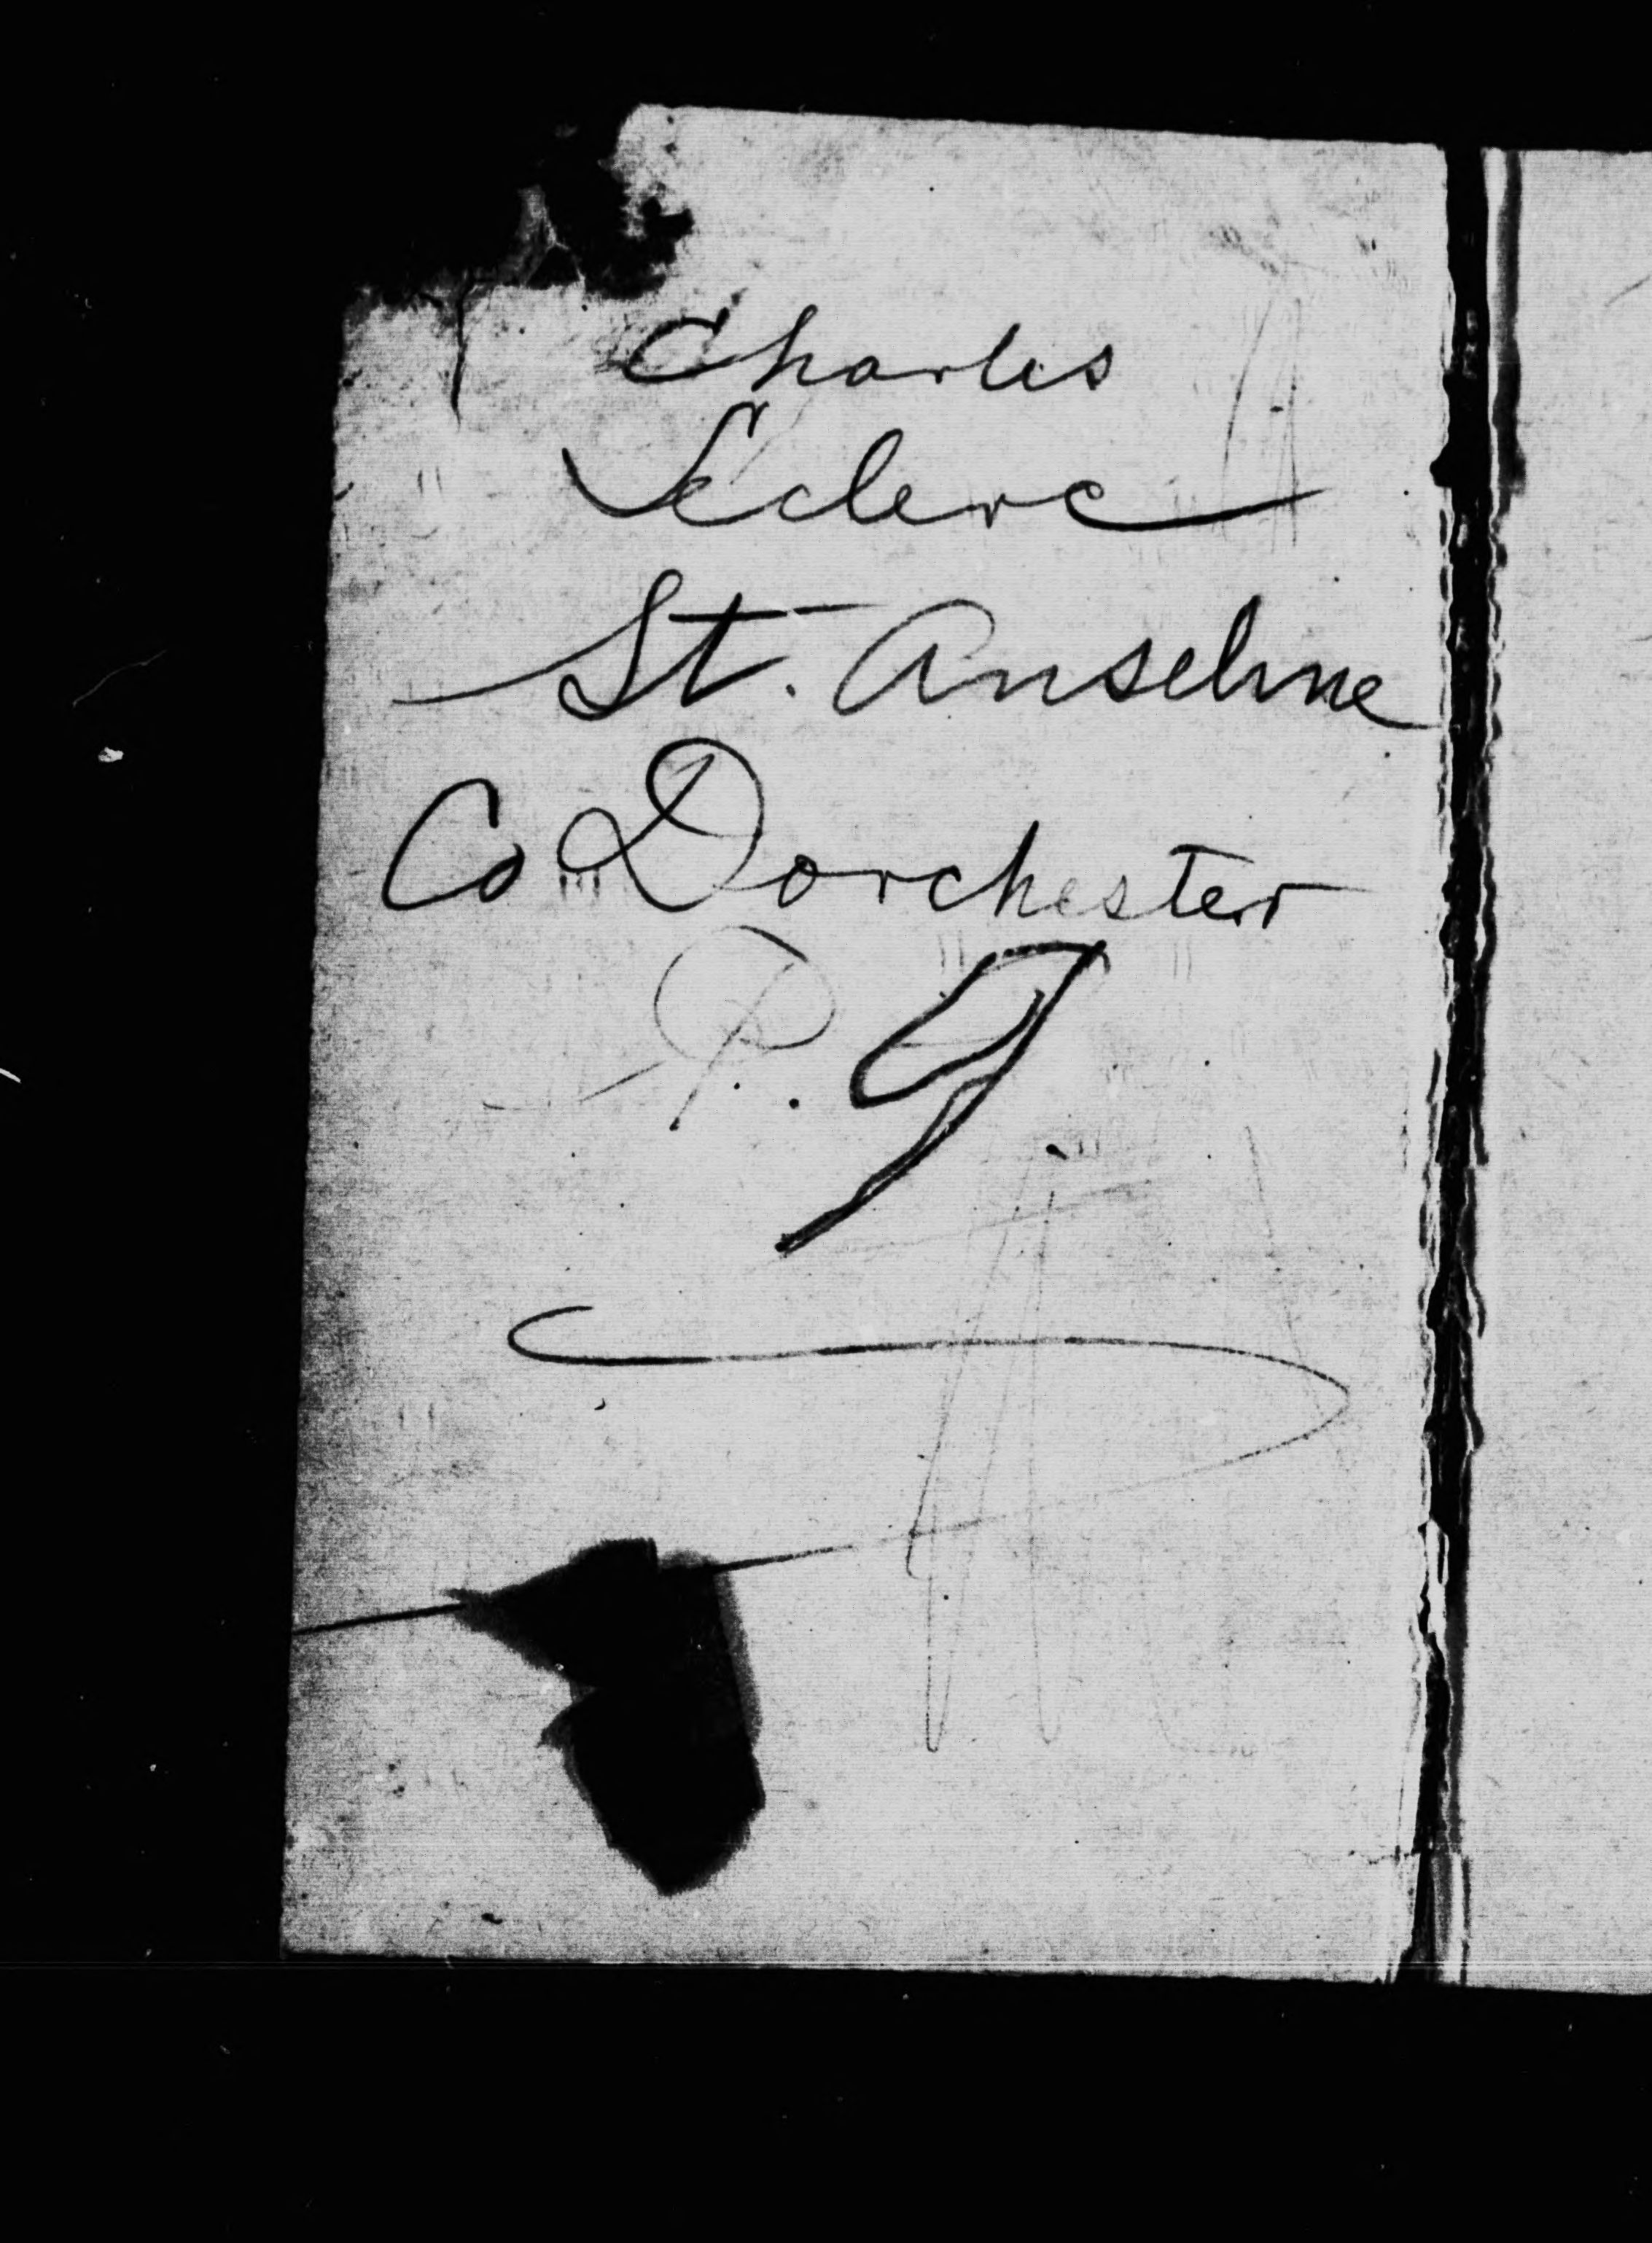 Charles
Leclerc
St. Anselme
Co Dorchester
P. Q.